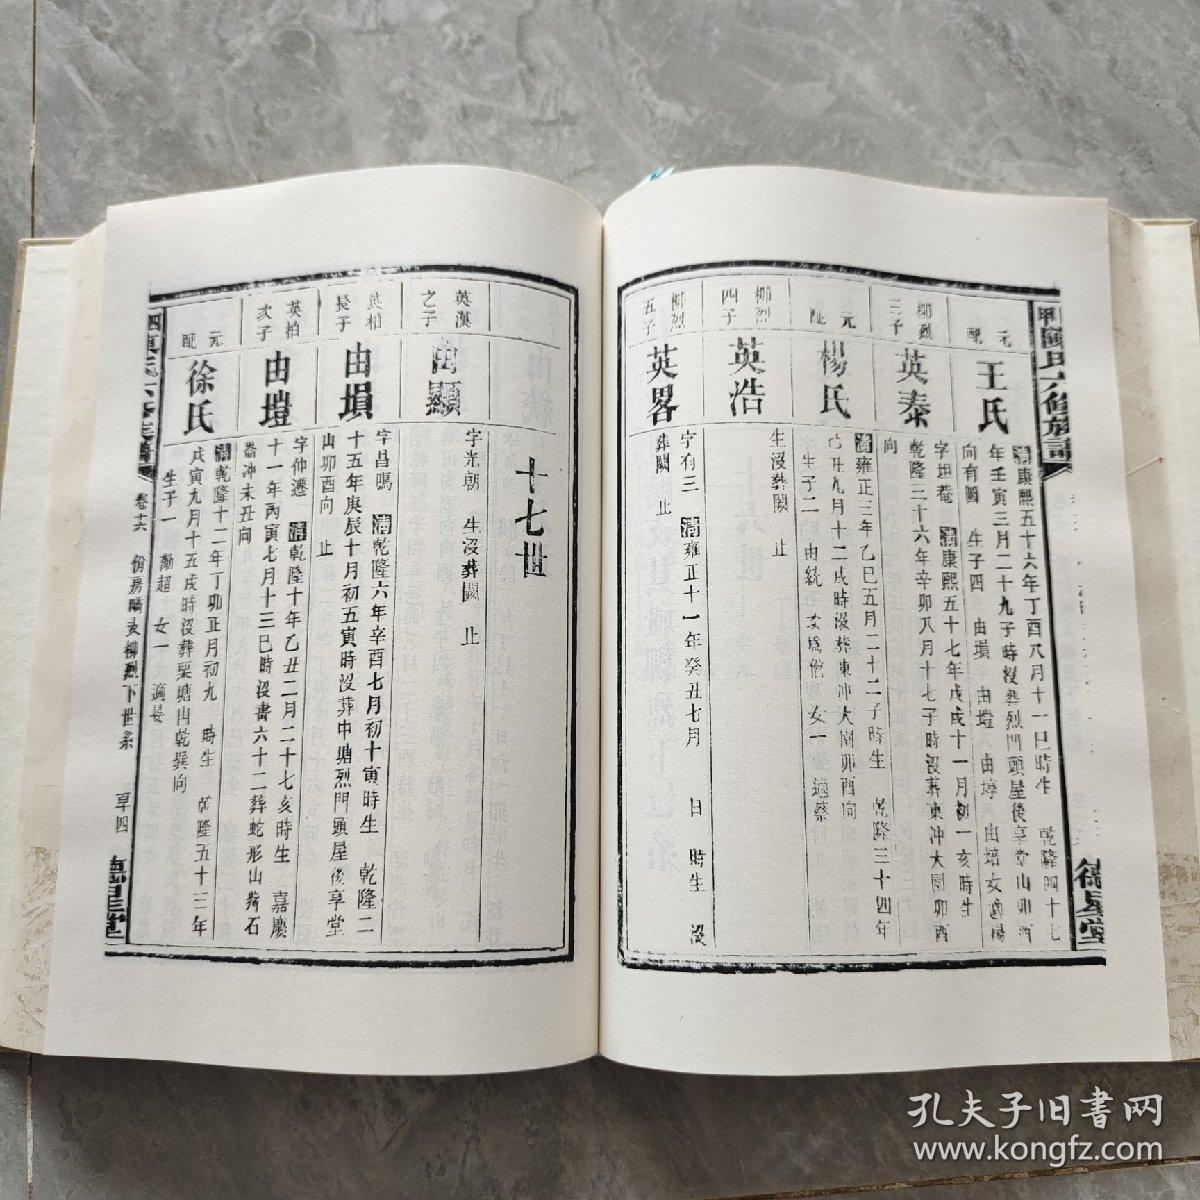 六修族譜
元
配
王氏
清康熙五十六年丁酉八月十一巳時生 乾隆四十七
年壬寅三月二十九子時沒葬烈門頭屋後享堂山卯酉
向有圖 生子四 由塤 由塏 由㙓 由培女適楊
柳烈
三子
英泰
字坦菴 清康熙五十七年戊戌十一月初一亥時生
乾隆三十六年辛卯八月十七子時沒葬東冲大園卯酉
向
元
配
楊氏
清雍正三年乙巳五月二十二子時生 乾隆三十四年
己丑九月十二戌時沒葬東冲大園卯酉向
生子二 由統 女一 適蔡
柳烈
四子
英浩
生沒葬闕 止
柳烈
五子
英畧
字有三 清雍正十一年癸丑七月 日 時生 沒
葬闕 止
十七世
英漢
之子
由顯
字光朝 生沒葬闕 止
英柏
長子
由塤
字昌鳴 清乾隆六年辛酉七月初十寅時生 乾隆二
十五年庚辰十月初五寅時沒葬中塘烈門頭屋後享堂
山卯酉向 止
英柏
次子
由塏
字仲遷 清乾隆十年乙丑二月二十七亥時生 嘉慶
十一年丙寅七月十三巳時沒書六十二葬蛇形山葬石
冲未丑向
元
配
徐氏
清乾隆十二年丁卯正月初九 時生 乾隆五十三年
戊寅九月十五戌時沒葬栗塘山乾巽向
生子一 勳超 女一 適
卷十六 柳烈下世系
孔夫子旧书网
www.kongfz.com